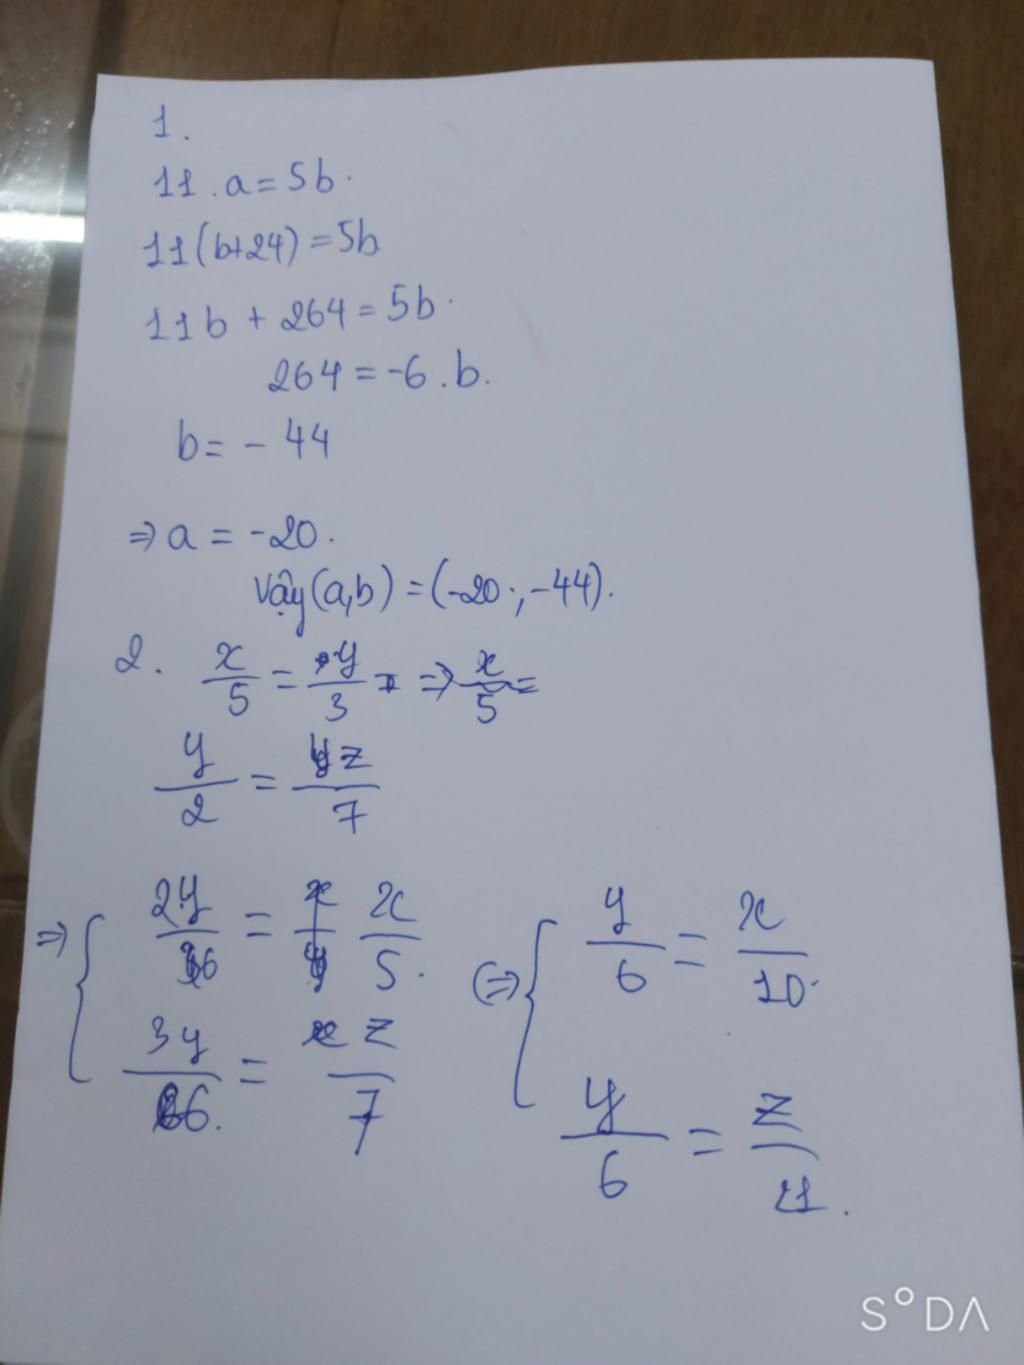 1.
11.a=5b.
11(b+24)=5b
11b + 264=5b.
264=-6.b.
b= - 44
⇒ a = -20.
Vậy(a,b) = (-20;-44).
2. x/5 = y/3 ⇒ x/5 =
y/2 = z/7
⇒ { 2y/6 = x/5. (⇒) { y/6 = x/10.
3y/6. = z/7 y/6 = z/21.
S°DΛ